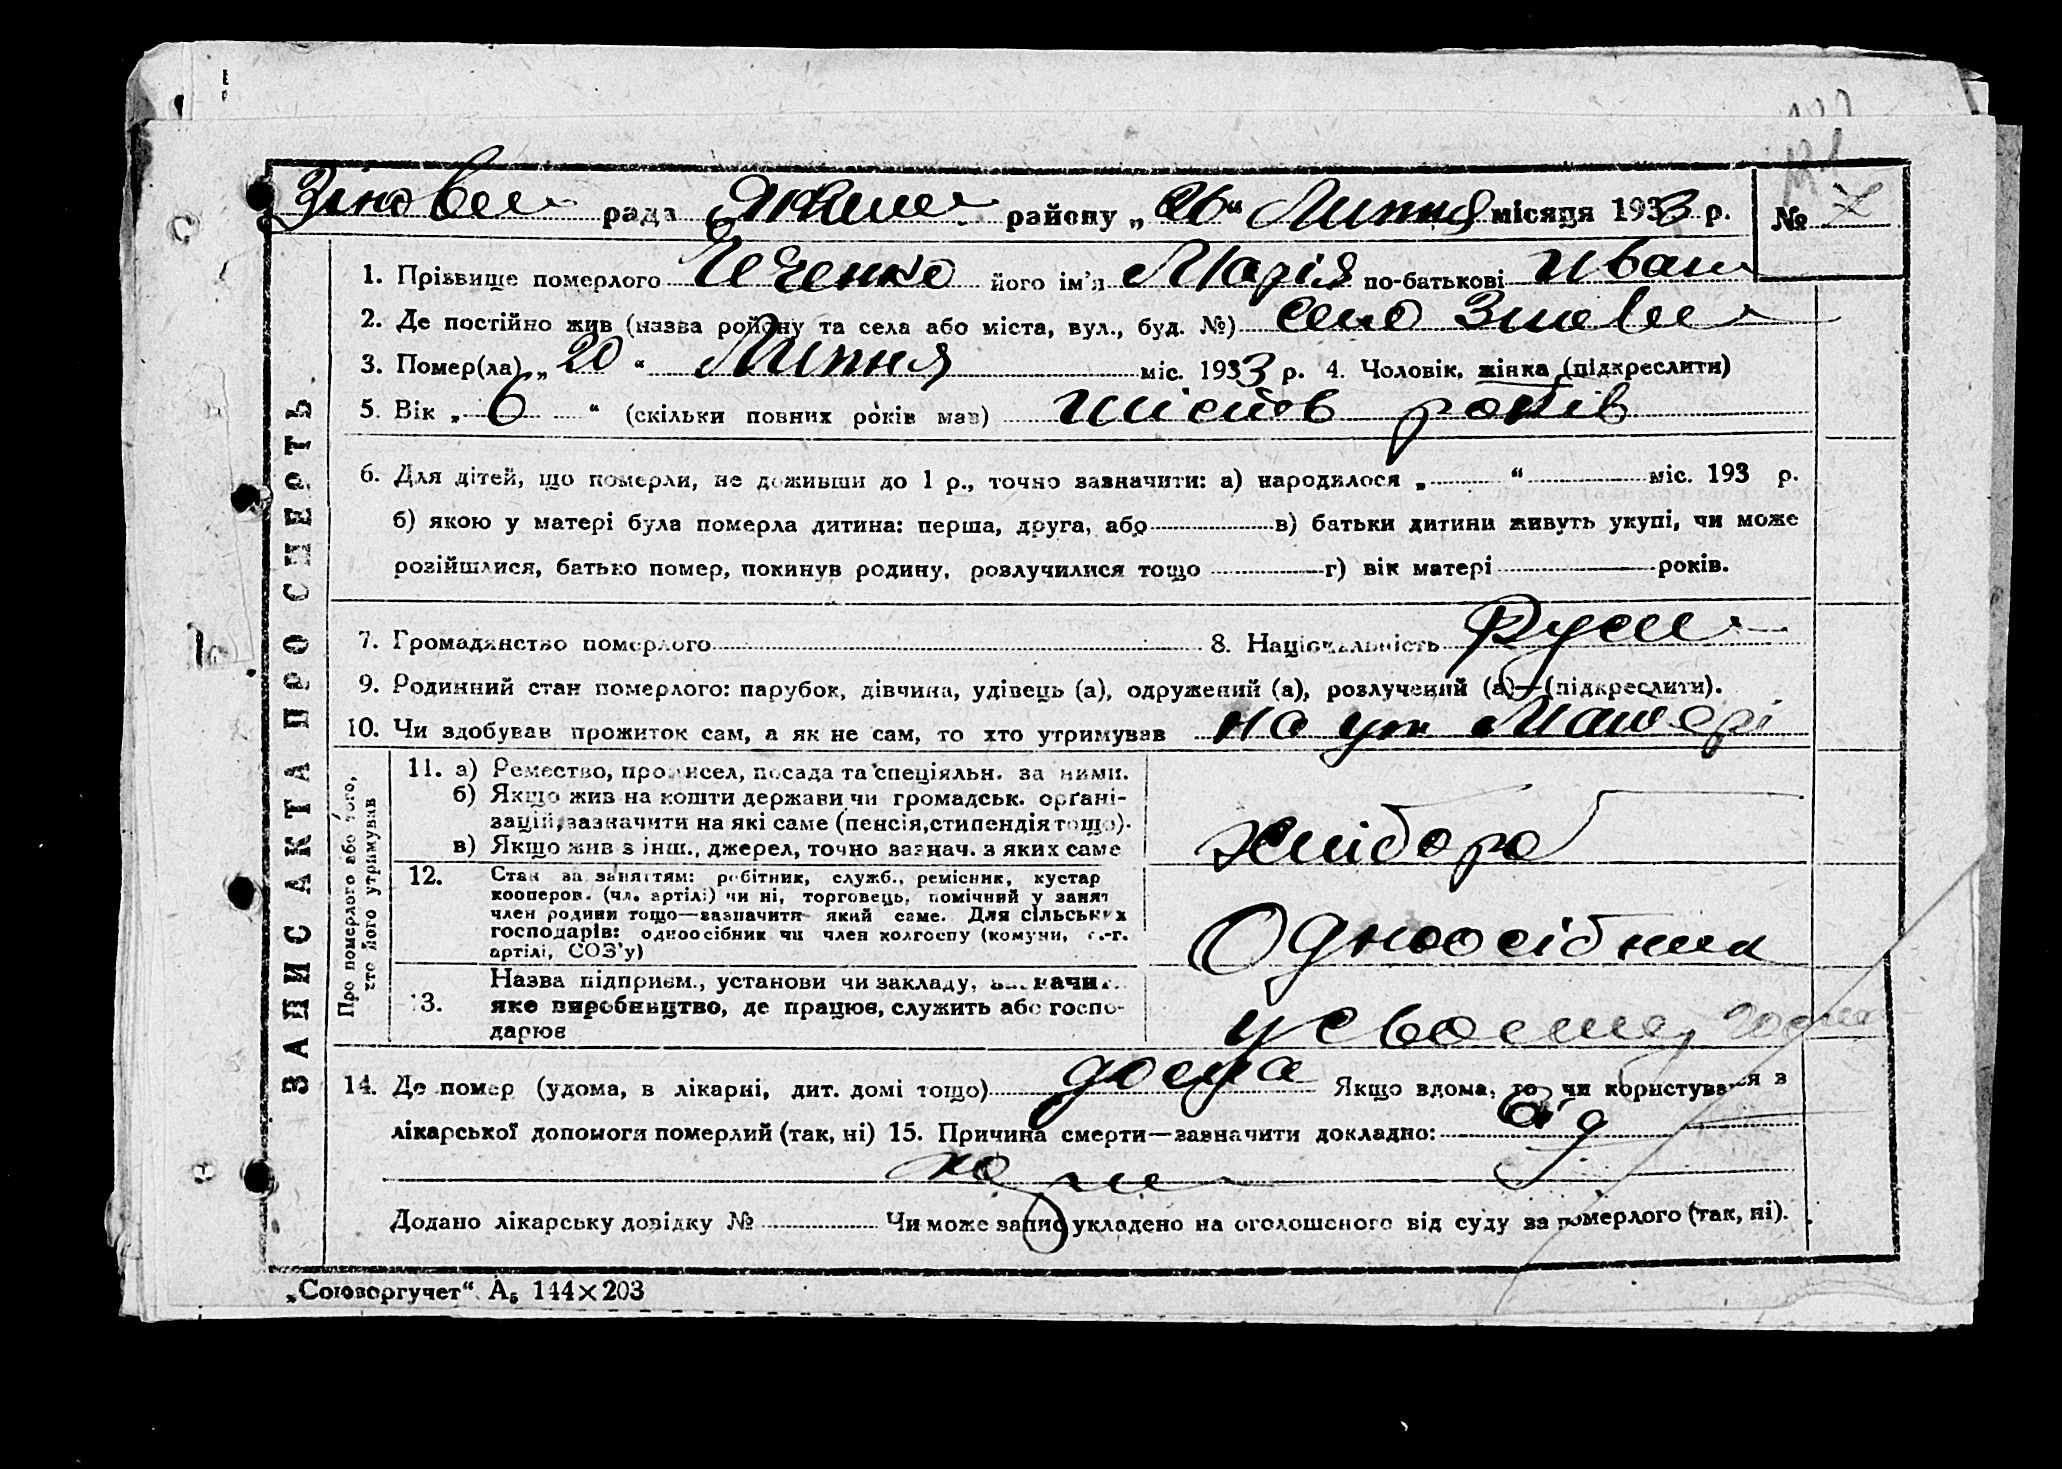 Зінове рада районy „26“ Липня місяця 1933 р. №
1. Прізвище померлого його ім'я Марія по-батькові Иван
2. Де постійно жив (назва ройону та села або міста, вул., буд. №) село Зінове
3. Помер(ла) „20“ Липня міс. 1933 р. 4. Чоловік, жінка (підкреслити)
5. Вік „ 6 “ (скільки повних років мав) шість років
6. Для дітей, що померли, не доживши до 1 р., точно зазначити: а) народилося „ “ міс. 193 р.
б) якою у матері була померла дитина: перша, друга, або в) батьки дитини живуть укупі, чи може
розійшлися, батько помер, покинув родину, розлучилися тощо г) вік матері років.
7. Громадянство померлого 8. Національність Руск
9. Родинний стан померлого: парубок, дівчина, удівець (а), одружений (а), розлучений (а)—(підкреслити).
10. Чи здобував прожиток сам, а як не сам, то хто утримував на ут Матері
ЗАПИС АКТА ПРО СМЕРТЬ
Про померлого або того,
хто його утримував
11. а) Ремество, промисел, посада та спеціяльн. за ними.
б) Якщо жив на кошти держави чи громадськ. орґані-
зацій, зазначити на які саме (пенсія, стипендія тощо).
в) Якщо жив з інш., джерел, точно зазнач. з яких саме
хлібороб
12. Стан за заняттям: робітник, служб., ремісник, кустар
кооперов. (чл. артілі) чи ні, торговець, помічний у занят
член родини тощо—зазначити який саме. Для сільських
господарів: одноосібник чи член колгоспу (комуни, с.-г.
артілі, СОЗ'у)
Одноосібник
13. Назва підприєм., установи чи закладу, зазначит.
яке виробництво, де працює, служить або госпо-
дарює
у своєму
14. Де помер (удома, в лікарні, дит. домі тощо) дома Якщо вдома, то чи користувався в
лікарської допомоги померлий (так, ні) 15. Причина смерти—зазначити докладно: від
Додано лікарську довідку № Чи може запис укладено на оголошеного від суду за померлого (так, ні).
„Союзоргучет“ А5 144×203